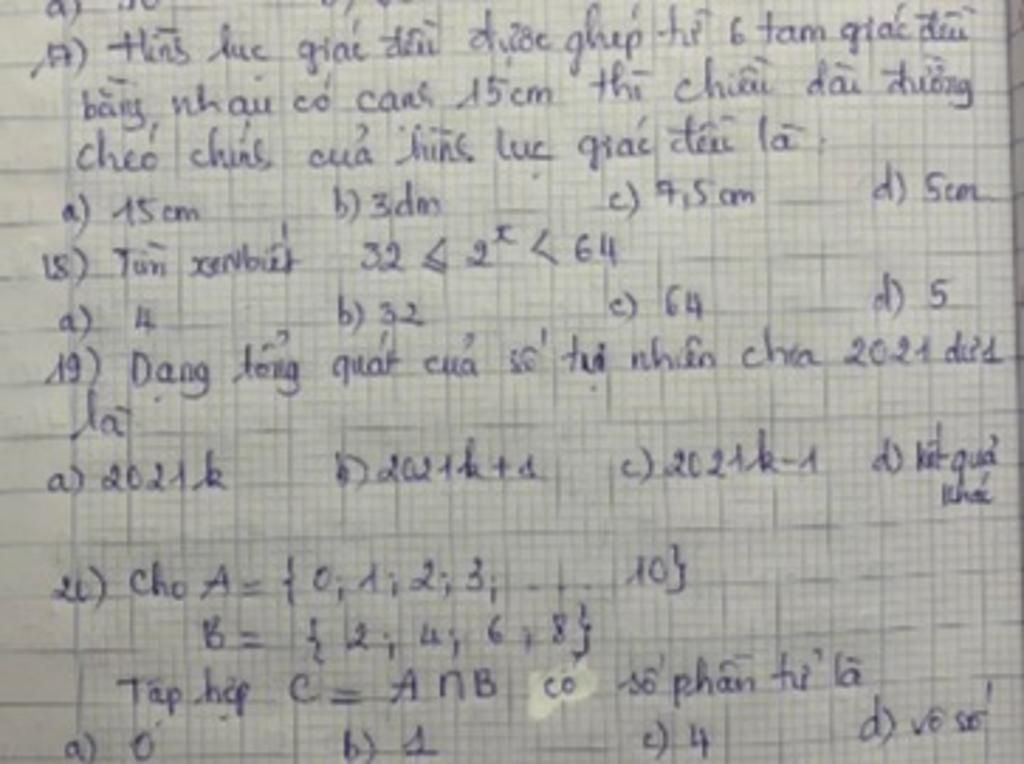 17) Hình lục giác đều được ghép từ 6 tam giác đều
bằng nhau có cạnh 15cm thì chiều dài đường
chéo chính của hình lục giác đều là:
a) 15cm b) 3dm c) 7,5cm d) 5cm
18) Tìm x∈N biết 32 ≤ 2^x < 64
a) 4 b) 32 c) 64 d) 5
19) Dạng tổng quát của số tự nhiên chia 2021 dư 1
là
a) 2021k b) 2021k+1 c) 2021k-1 d) kết quả
khác
Cho A = { 0; 1; 2; 3; ... 10}
B = { 2; 4; 6; 8}
Tập hợp C = A ∩ B có số phần tử là
a) 0 b) 1 c) 4 d) vô số